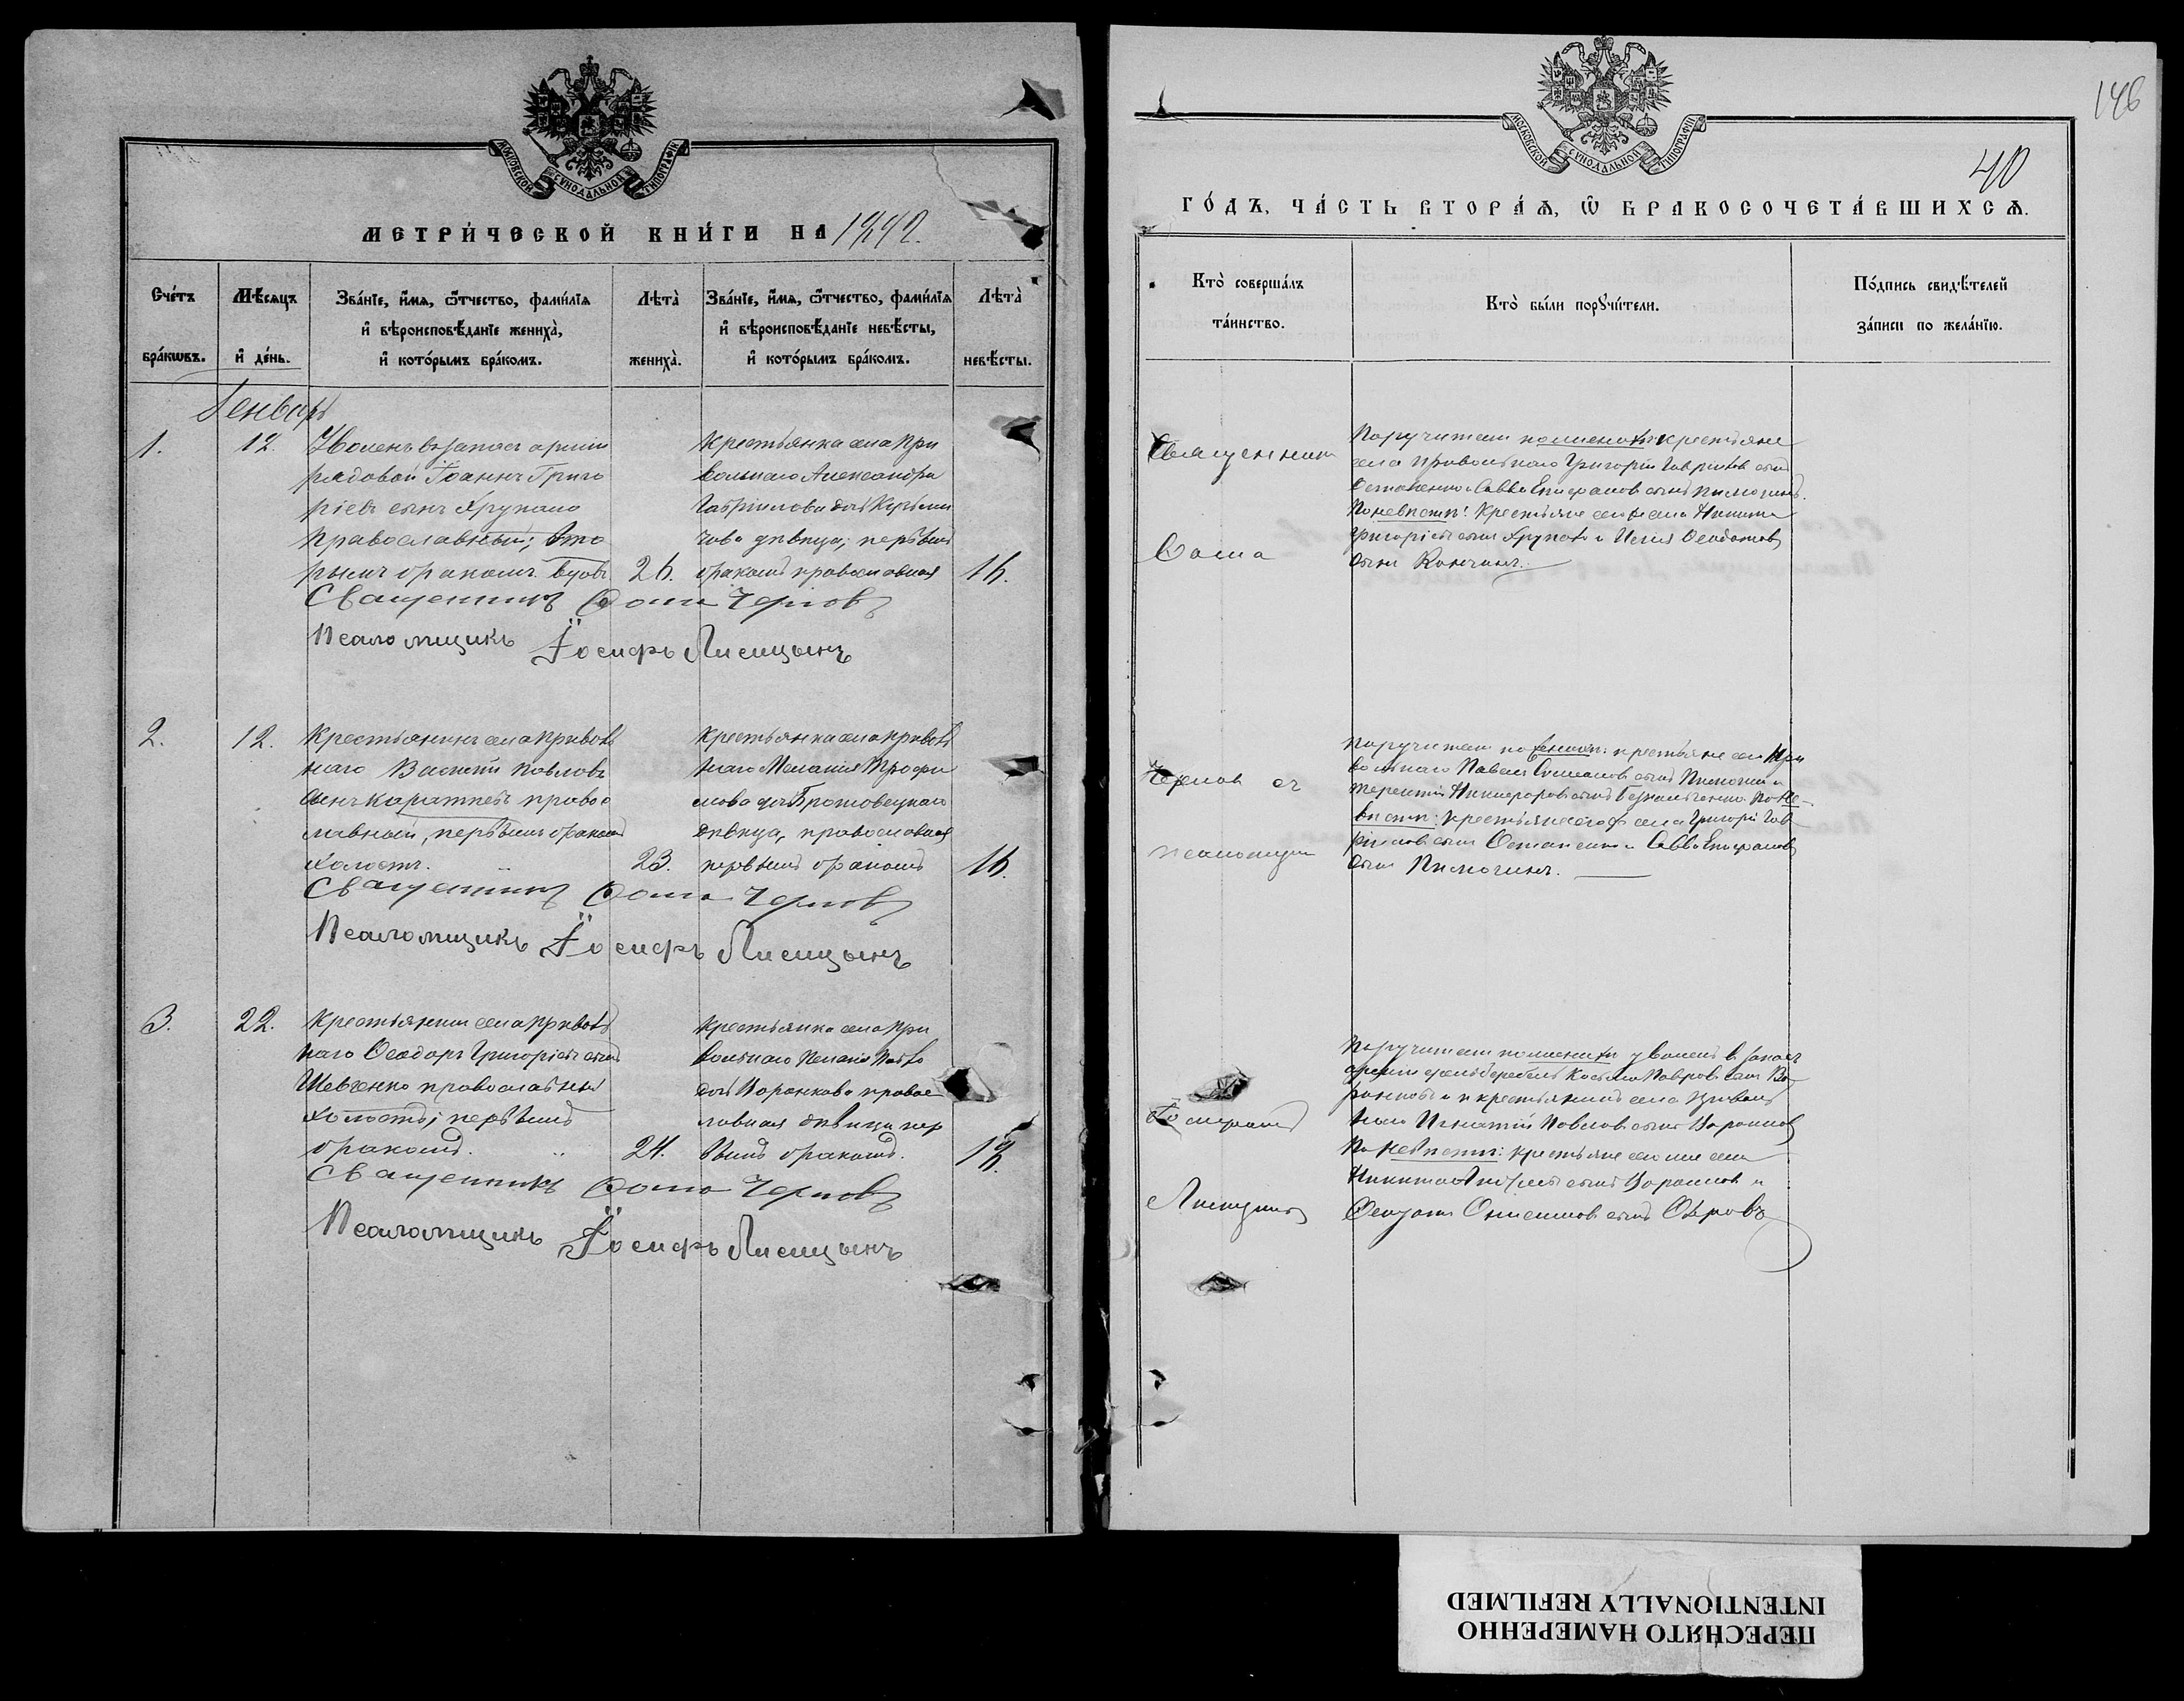 МОСКОВСКОЙ СУНОДАЛЬНОЙ ТИПОГРАФІИ
МЕТРИ́ЧЕСКОЙ КНИ́ГИ НА 1892.
Сче́тъ бра́кωвъ.
Мѣ́сяцъ и҆ де́нь.
Зва́нїе, и҆́мѧ, ѻ҆́тчество, фами́лїѧ
и҆ вѣроисповѣ́данїе жениха̀,
и҆ кото́рымъ бра́комъ.
Лѣта̀ жениха̀.
Зва́нїе, и҆́мѧ, ѻ҆́тчество, фами́лїѧ
и҆ вѣроисповѣ́данїе невѣ́сты,
и҆ кото́рымъ бра́комъ.
Лѣта̀ невѣ́сты.
Генварь
1. 12.
Уволенъ въ запасъ арміи
рядовой Іоаннъ Григо
ріевъ сынъ Хрупало
православный; вто
рымъ бракомъ вдовъ
26.
Крестьянка села При
вольнаго Александра
Гавриилова дочь
дѣвица, первымъ
бракомъ православная
16.
Священникъ Ѳома Черновъ
Псаломщикъ Іосифъ Лисицынъ
2. 12.
Крестьянинъ села Приволь
наго Василій Павловъ
сынъ правос
лавный, первымъ бракомъ
холостъ.
23.
Крестьянка села Приволь
наго Меланія Трофи
мова дочь
дѣвица, православная
первымъ бракомъ
16.
Священникъ Ѳома Черновъ
Псаломщикъ Іосифъ Лисицынъ
3. 22.
Крестьянинъ села Приволь
наго Ѳеодоръ Григоріевъ сынъ
Шевченко православный
холостъ; первымъ
бракомъ.
24.
Крестьянка села При
вольнаго
дочь Воронкова правос
лавная дѣвица пер
вымъ бракомъ.
18.
Священникъ Ѳома Черновъ
Псаломщикъ Іосифъ Лисицынъ
146
40
МОСКОВСКОЙ СУНОДАЛЬНОЙ ТИПОГРАФІИ
ГО́ДЪ, ЧА́СТЬ ВТОРА́Ѧ, Ѽ БРАКОСОЧЕТА́ВШИХСѦ.
Кто̀ соверша́лъ
та́инство.
Кто̀ бы́ли порꙋчи́тели.
По́дпись свидѣ́телей
за́писи по жела́нїю.
Священникъ
Ѳома
Черновъ съ
псаломщик
Іосифомъ
Лисицынъ
Поручители по женихѣ: крестьяне
села Привольнаго Григорій Гавриловъ сынъ
Остапенко и Савва Епифановъ сынъ Пилюгинъ.
По невѣстѣ: крестьяне села Никита
Григоріевъ сынъ и Ѳеодотовъ
сынъ
Поручители по женихѣ: крестьяне села При
вольнаго Павелъ сынъ Пилюгинъ и
Терентій Никифоровъ сынъ По не-
вѣстѣ: крестьяне села Григорій Гав
риловъ сынъ Остапенко и Савва Епифановъ
сынъ Пилюгинъ.
Поручители по женихѣ уволенъ въ запасъ
арміи Косьма сынъ Во
ронковъ и крестьянинъ села Приволь
наго Игнатій Павловъ сынъ Воронковъ
По невѣстѣ: крестьяне села
Никита сынъ Воронковъ и
Онисимовъ сынъ
ПЕРЕСНЯТО НАМЕРЕННО
INTENTIONALLY REFILMED